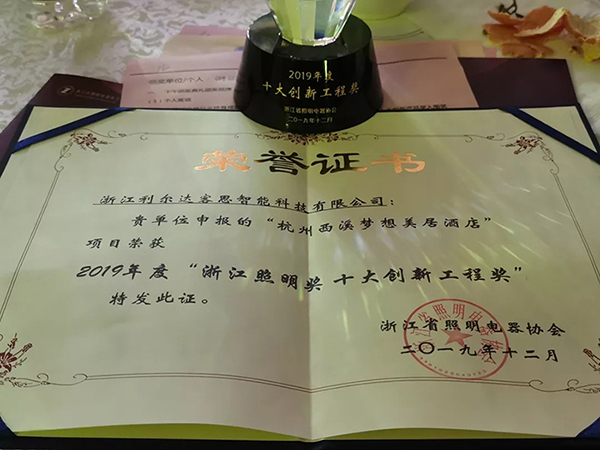 2019年度
十大创新工程奖
浙江省照明电器协会
二〇一九年十二月
荣誉证书
浙江利尔达客思智能科技有限公司：
贵单位申报的“杭州西溪梦想美居酒店”
项目荣获
2019年度“浙江照明奖十大创新工程奖”
特发此证。
浙江省照明电器协会
二〇一九年十二月